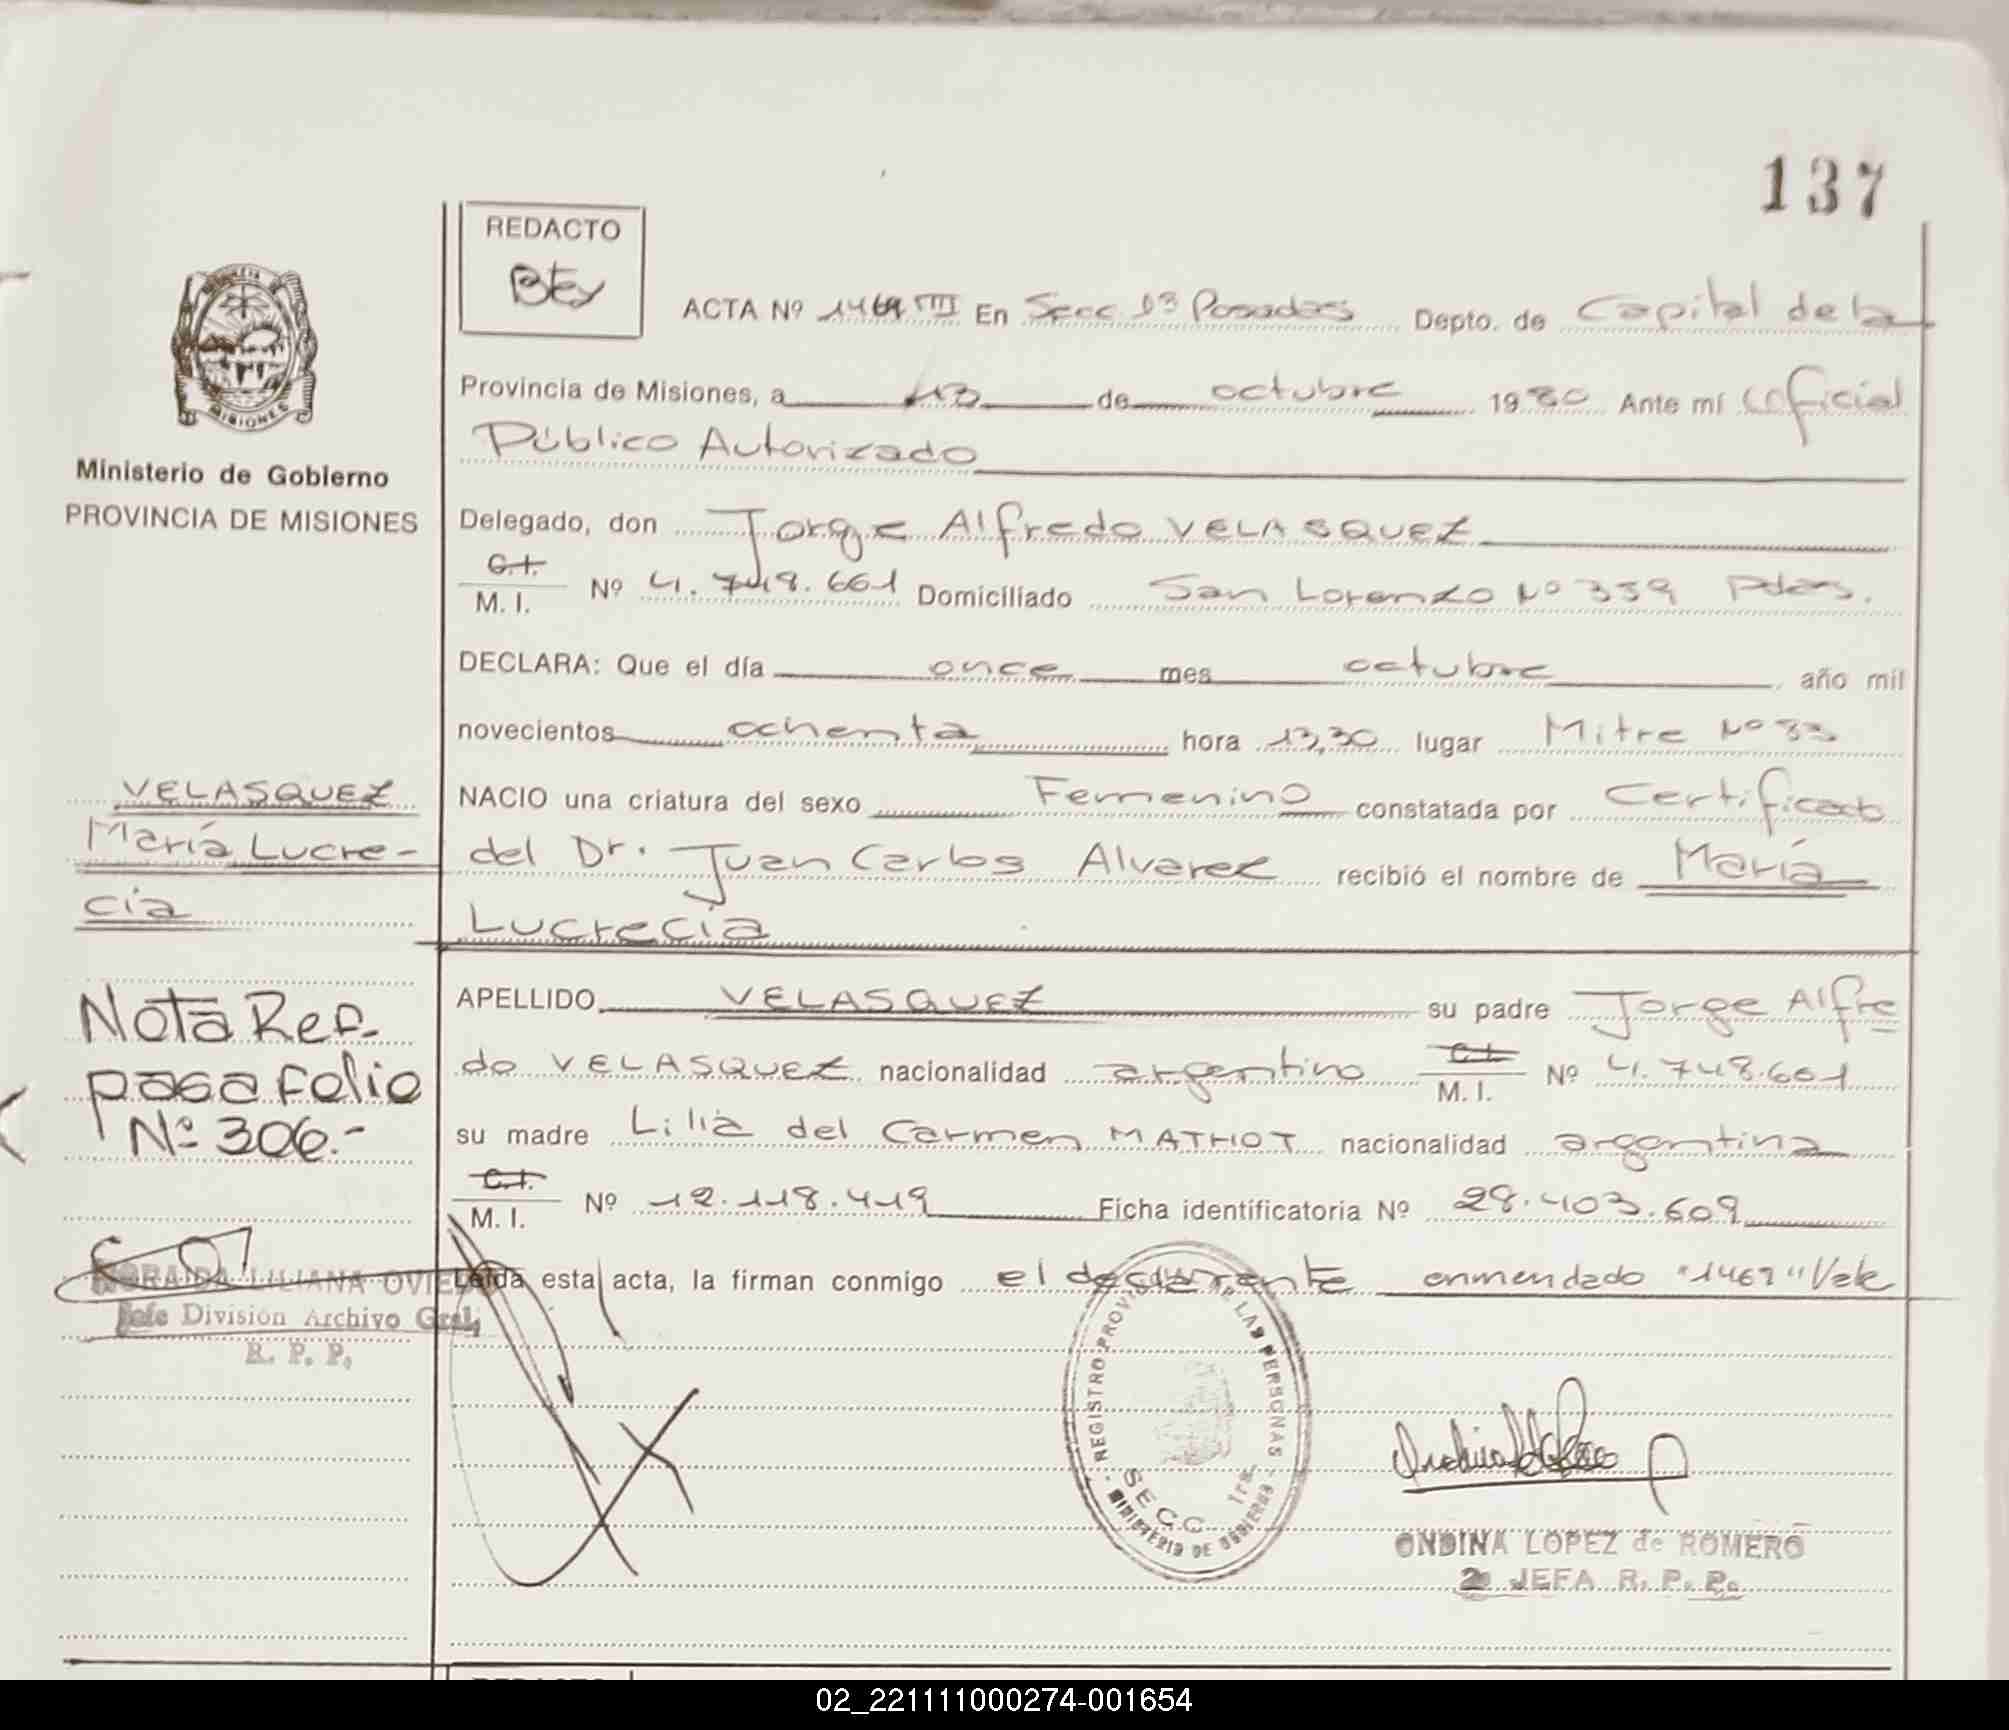 137
REDACTO
PROVINCIA
MISIONES
Ministerio de Gobierno
PROVINCIA DE MISIONES
ACTA Nº 1469 VIII En Secc 1ª Posadas Depto. de Capital de la
Provincia de Misiones, a 13 de octubre 1980 Ante mí (oficial
Público Autorizado
Delegado, don Jorge Alfredo VELASQUEZ
C.I.
M. I. Nº 4.748.661 Domiciliado San Lorenzo Nº 359 Pdas.
DECLARA: Que el día once mes octubre año mil
novecientos ochenta hora 13,30 lugar Mitre Nº 33
NACIO una criatura del sexo Femenino constatada por Certificado
del Dr. Juan Carlos Alvarez recibió el nombre de María
Lucrecia
VELASQUEZ
María Lucre-
cia
APELLIDO VELASQUEZ su padre Jorge Alfre
do VELASQUEZ nacionalidad argentino C.I. M. I. Nº 4.748.661
su madre Lilia del Carmen MATHOT nacionalidad argentina
C.I.
M. I. Nº 12.118.419 Ficha identificatoria Nº 28.403.609
Leída esta acta, la firman conmigo el declarante enmendado "1469" Vale
Nota Ref.
pasa folio
Nº 306.-
LILIANA OVIEDO
Jefe División Archivo Gral,
R. P. P.
REGISTRO PROVINCIAL DE LAS PERSONAS
SECC. 1ra.
MINISTERIO DE GOBIERNO
ONDINA LOPEZ de ROMERO
2ª JEFA R. P. P.
REDACTO
02_221111000274-001654